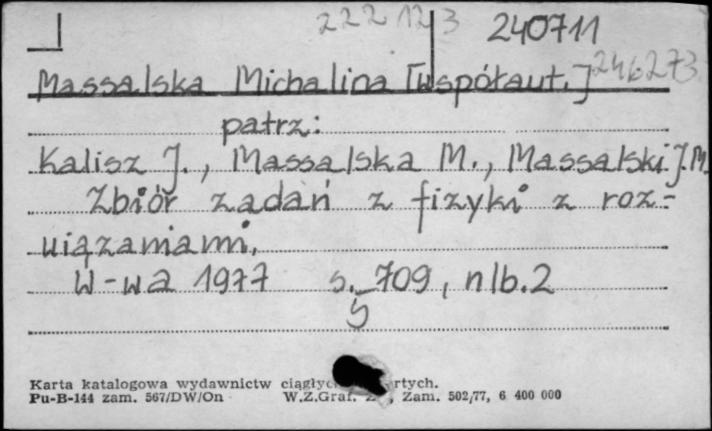 222 123 240711
Massalska Michalina [współaut.] 246273
patrz:
Kalisz J., Massalska M., Massalski J.M.
Zbiór zadań z fizyki z roz-
wiązaniami.
W-wa 1977 s. 709, nlb.2
5
Karta katalogowa wydawnictw rtych.
Pu-B-144 zam. 567/DW/On W.Z.Graf. Zam. 502/77, 6 400 000